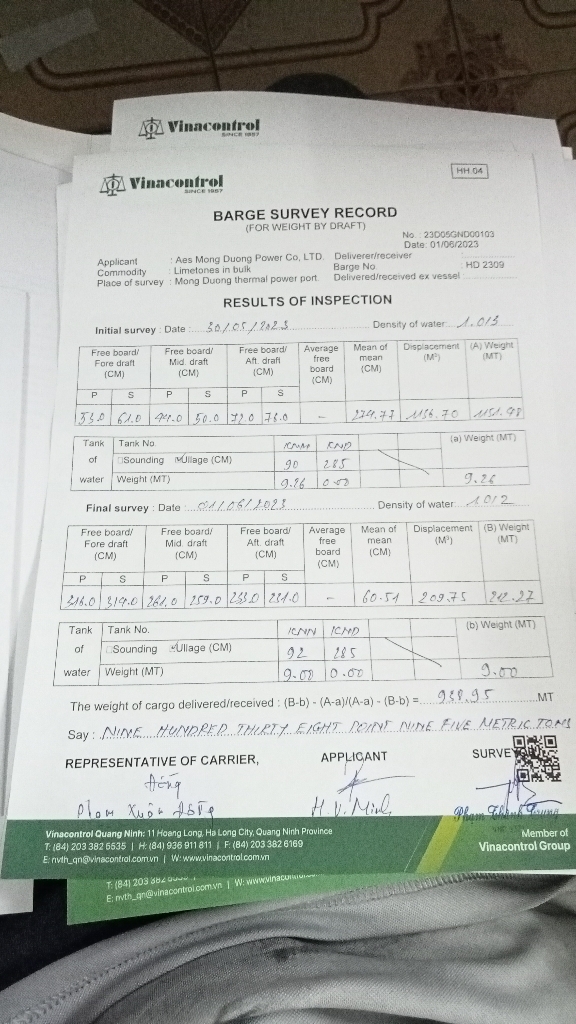 Vinacontrol
SINCE 1957
Vinacontrol
SINCE 1957
HH.04
BARGE SURVEY RECORD
(FOR WEIGHT BY DRAFT)
No.: 23D05GND00103
Date: 01/06/2023
Applicant : Aes Mong Duong Power Co, LTD. Deliverer/receiver
Commodity : Limetones in bulk Barge No. : HD 2309
Place of survey : Mong Duong thermal power port. Delivered/received ex vessel :
RESULTS OF INSPECTION
Initial survey : Date : 30/05/2023 Density of water: 1.013
Free board/ Fore draft (CM) Free board/ Mid. draft (CM) Free board/ Aft. draft (CM) Average free board (CM) Mean of mean (CM) Displacement (M³) (A) Weight (MT)
P S P S P S
53.0 61.0 50.0 72.0 78.0 - 274.77 1136.70 1151.48
Tank of water Tank No. KNM KND (a) Weight (MT)
Sounding Ullage (CM) 90 285
Weight (MT) 9.26 0.00 9.26
Final survey : Date : 01/06/2023 Density of water: 1.012
Free board/ Fore draft (CM) Free board/ Mid. draft (CM) Free board/ Aft. draft (CM) Average free board (CM) Mean of mean (CM) Displacement (M³) (B) Weight (MT)
P S P S P S
316.0 319.0 261.0 259.0 233.0 231.0 - 60.51 209.75 212.27
Tank of water Tank No. KNM KND (b) Weight (MT)
Sounding Ullage (CM) 92 285
Weight (MT) 9.00 0.00 9.00
The weight of cargo delivered/received : (B-b) - (A-a)/(A-a) - (B-b) = 938.95 MT
Say : NINE HUNDRED THIRTY EIGHT POINT NINE FIVE METRIC TONS
REPRESENTATIVE OF CARRIER, APPLICANT SURVEYOR
Phạm Xuân H.V. Minh Phạm Thành Trung
Vinacontrol Quang Ninh: 11 Hoang Long, Ha Long City, Quang Ninh Province
T: (84) 203 382 5535 | H: (84) 936 911 811 | F: (84) 203 382 6169
E: nvth_qn@vinacontrol.com.vn | W: www.vinacontrol.com.vn
Member of
Vinacontrol Group
T: (84) 203 382
E: nvth_qn@vinacontrol.com.vn | W: www.vinacontrol.com.vn